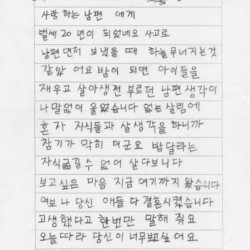 사랑하는 남편 에게
벌써 20 년이 되었네요 사고로
남편 먼저 보냈을때 하늘 무너지는것
같았 어요 밤이 되면 아이들을
재우고 살아생전 부르던 남편 생각이
나 말없이 울었습니다 없는 살림에
혼자 자식들과 살생각을 하니까
잠기가 막히 더군요 밥달라는
자식굶길수 없어 살다보니다
보고싶은 마음 지금 여기까지 왔습니다
여보 나 당신 애들 다 결혼시켰습니다
고생했다고 한번만 말해 줘요
오늘따라 당신이 너무보고싶 어요.